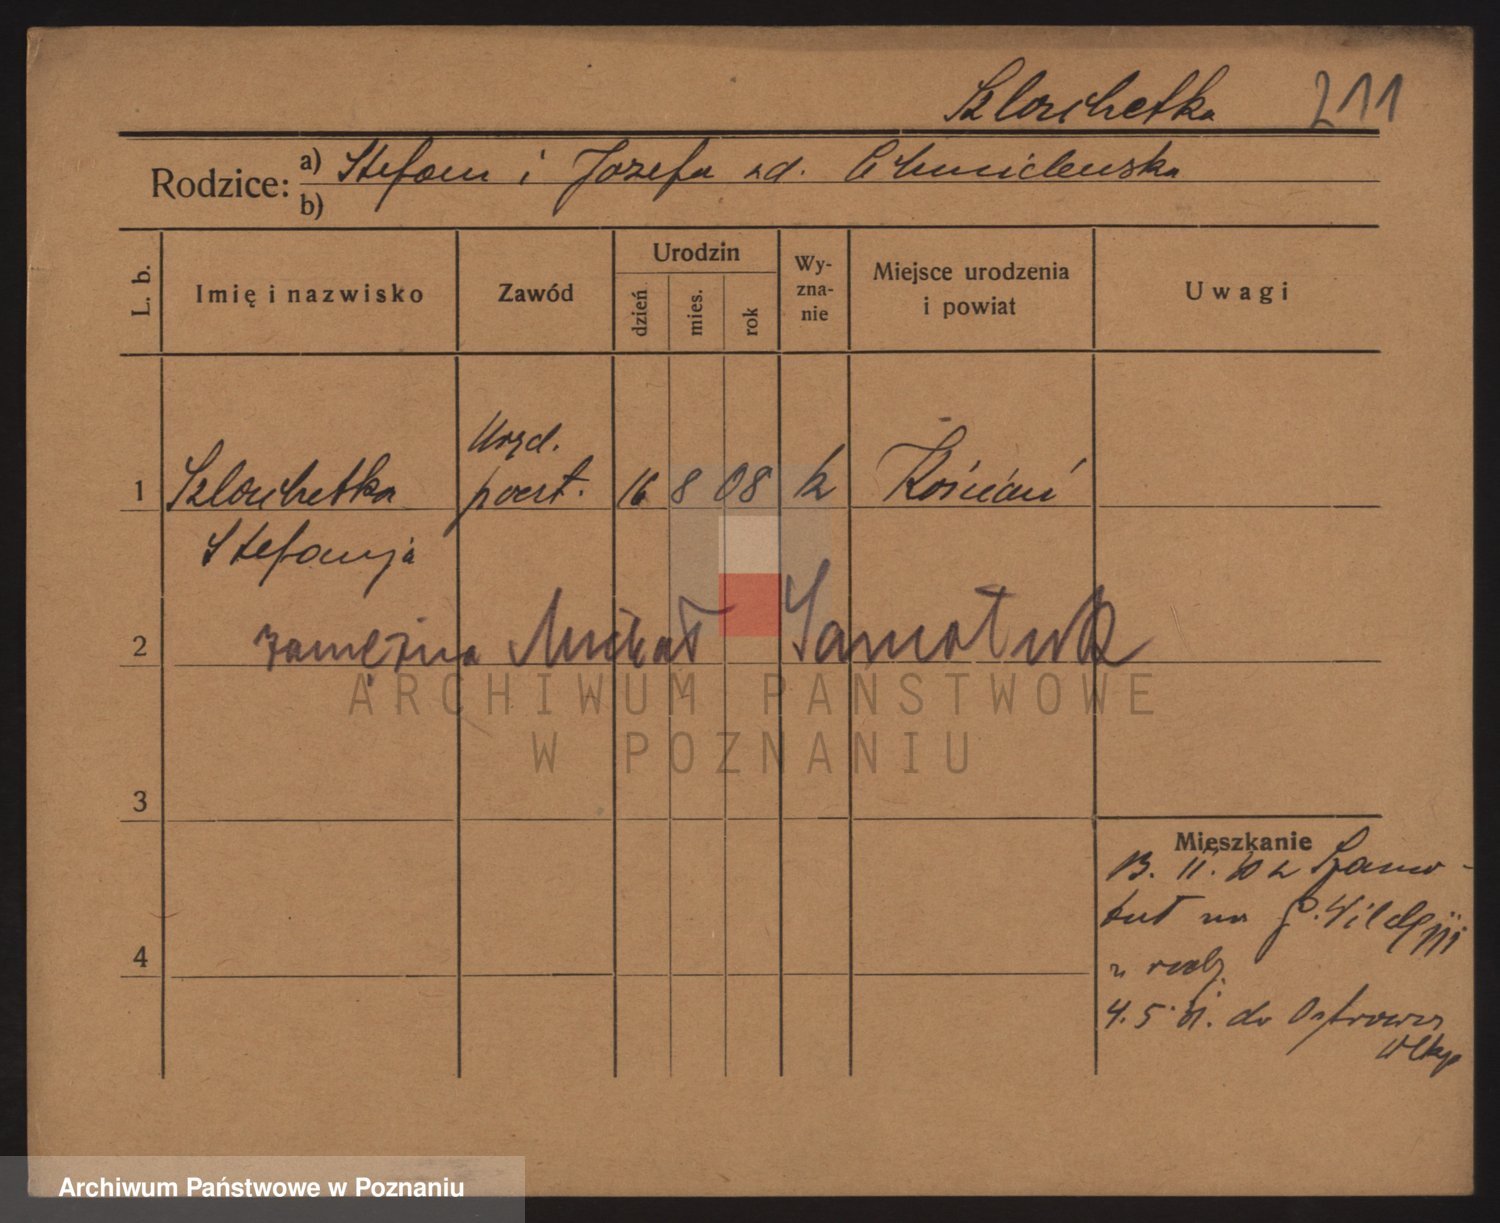 Szlachetka 211
Rodzice: a) Stefan i Józefa zd. Chmielewska
b)
L. b. Imię i nazwisko Zawód Urodzin dzień mies. rok Wyzna-nie Miejsce urodzenia i powiat Uwagi
Urzd.
1 Szlachetka poczt. 16 8 08 k Kościan
Stefanja
2 zamężna Michał Samolak
ARCHIWUM PAŃSTWOWE
W POZNANIU
3
Mieszkanie
13. II. 30 z Szamo-
tuł na
4 u rodz.
4. 5. 31. do Ostrowa
Wlkp
Archiwum Państwowe w Poznaniu